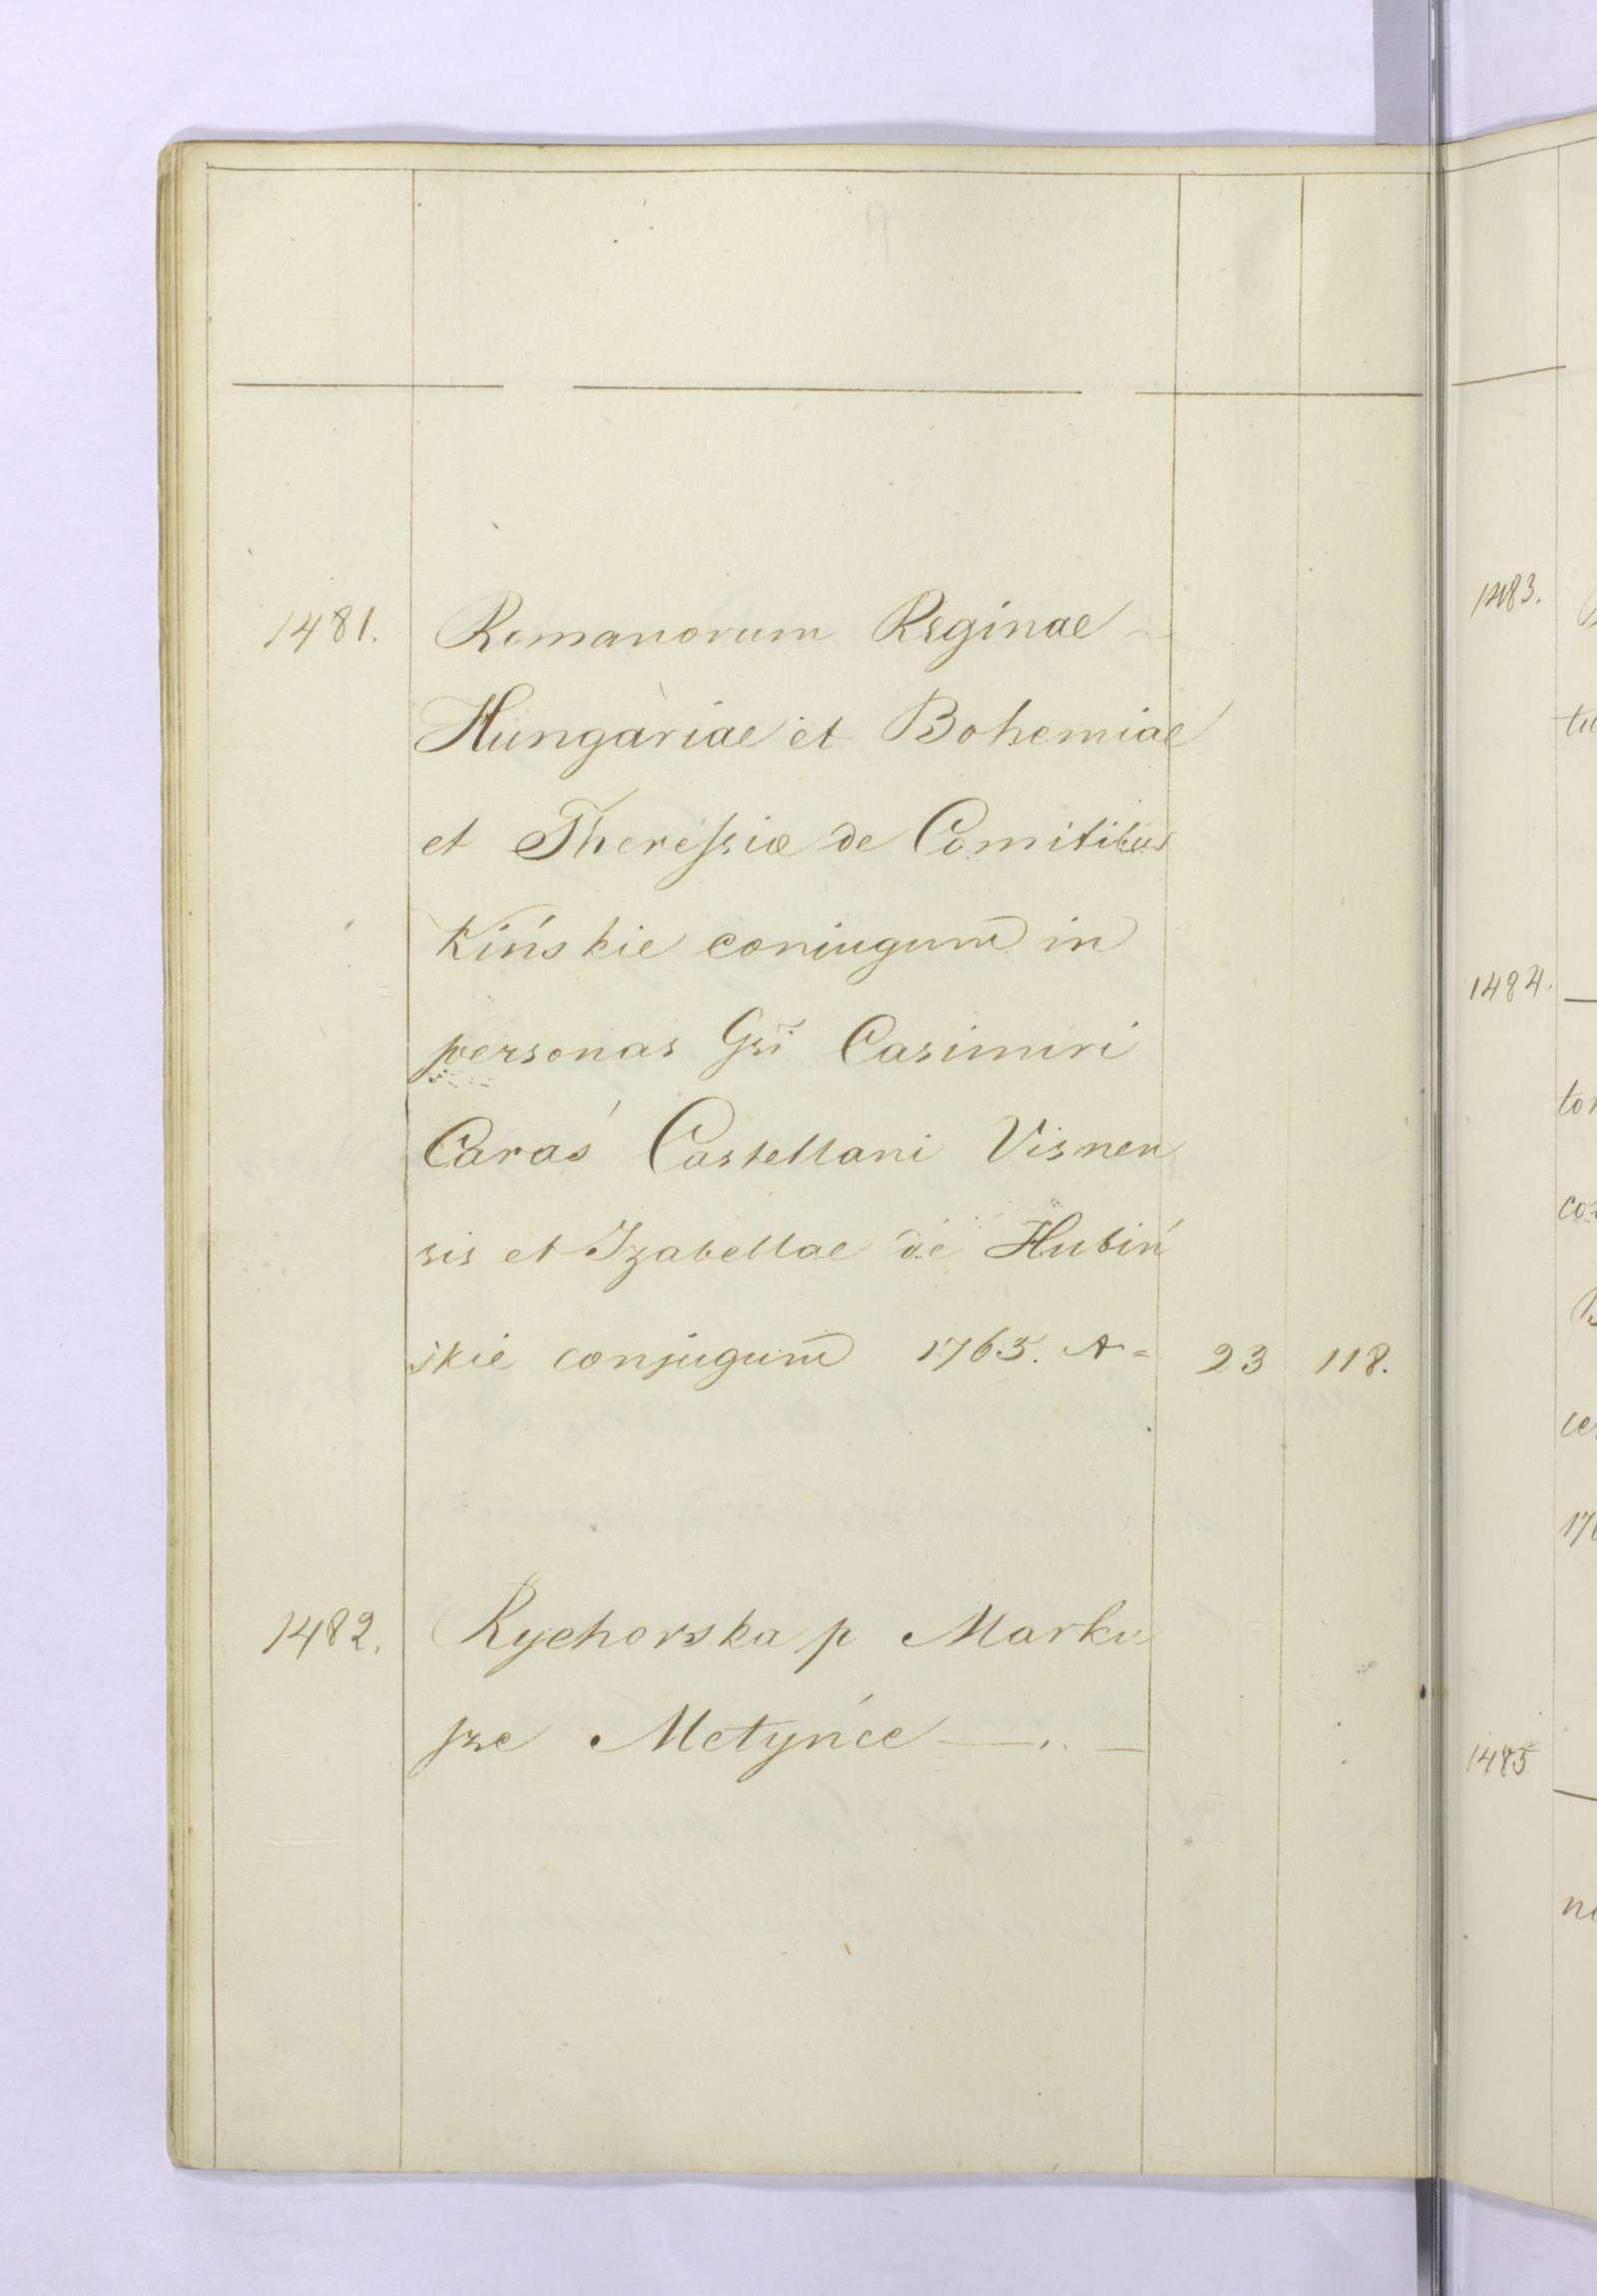 1481. Romanorum Reginae
Hungariae et Bohemiae
et TheresSiæ de Comitibus
Kińskie coniugum in
personas Gsi Casimiri
Caraś Castellani Visnen
sis et Izabellae de Hubiń
skie conjugum 1765. A= 23 118.
1482. Rychorska p Marku
sze Metyńce
1483.
1484.
1485